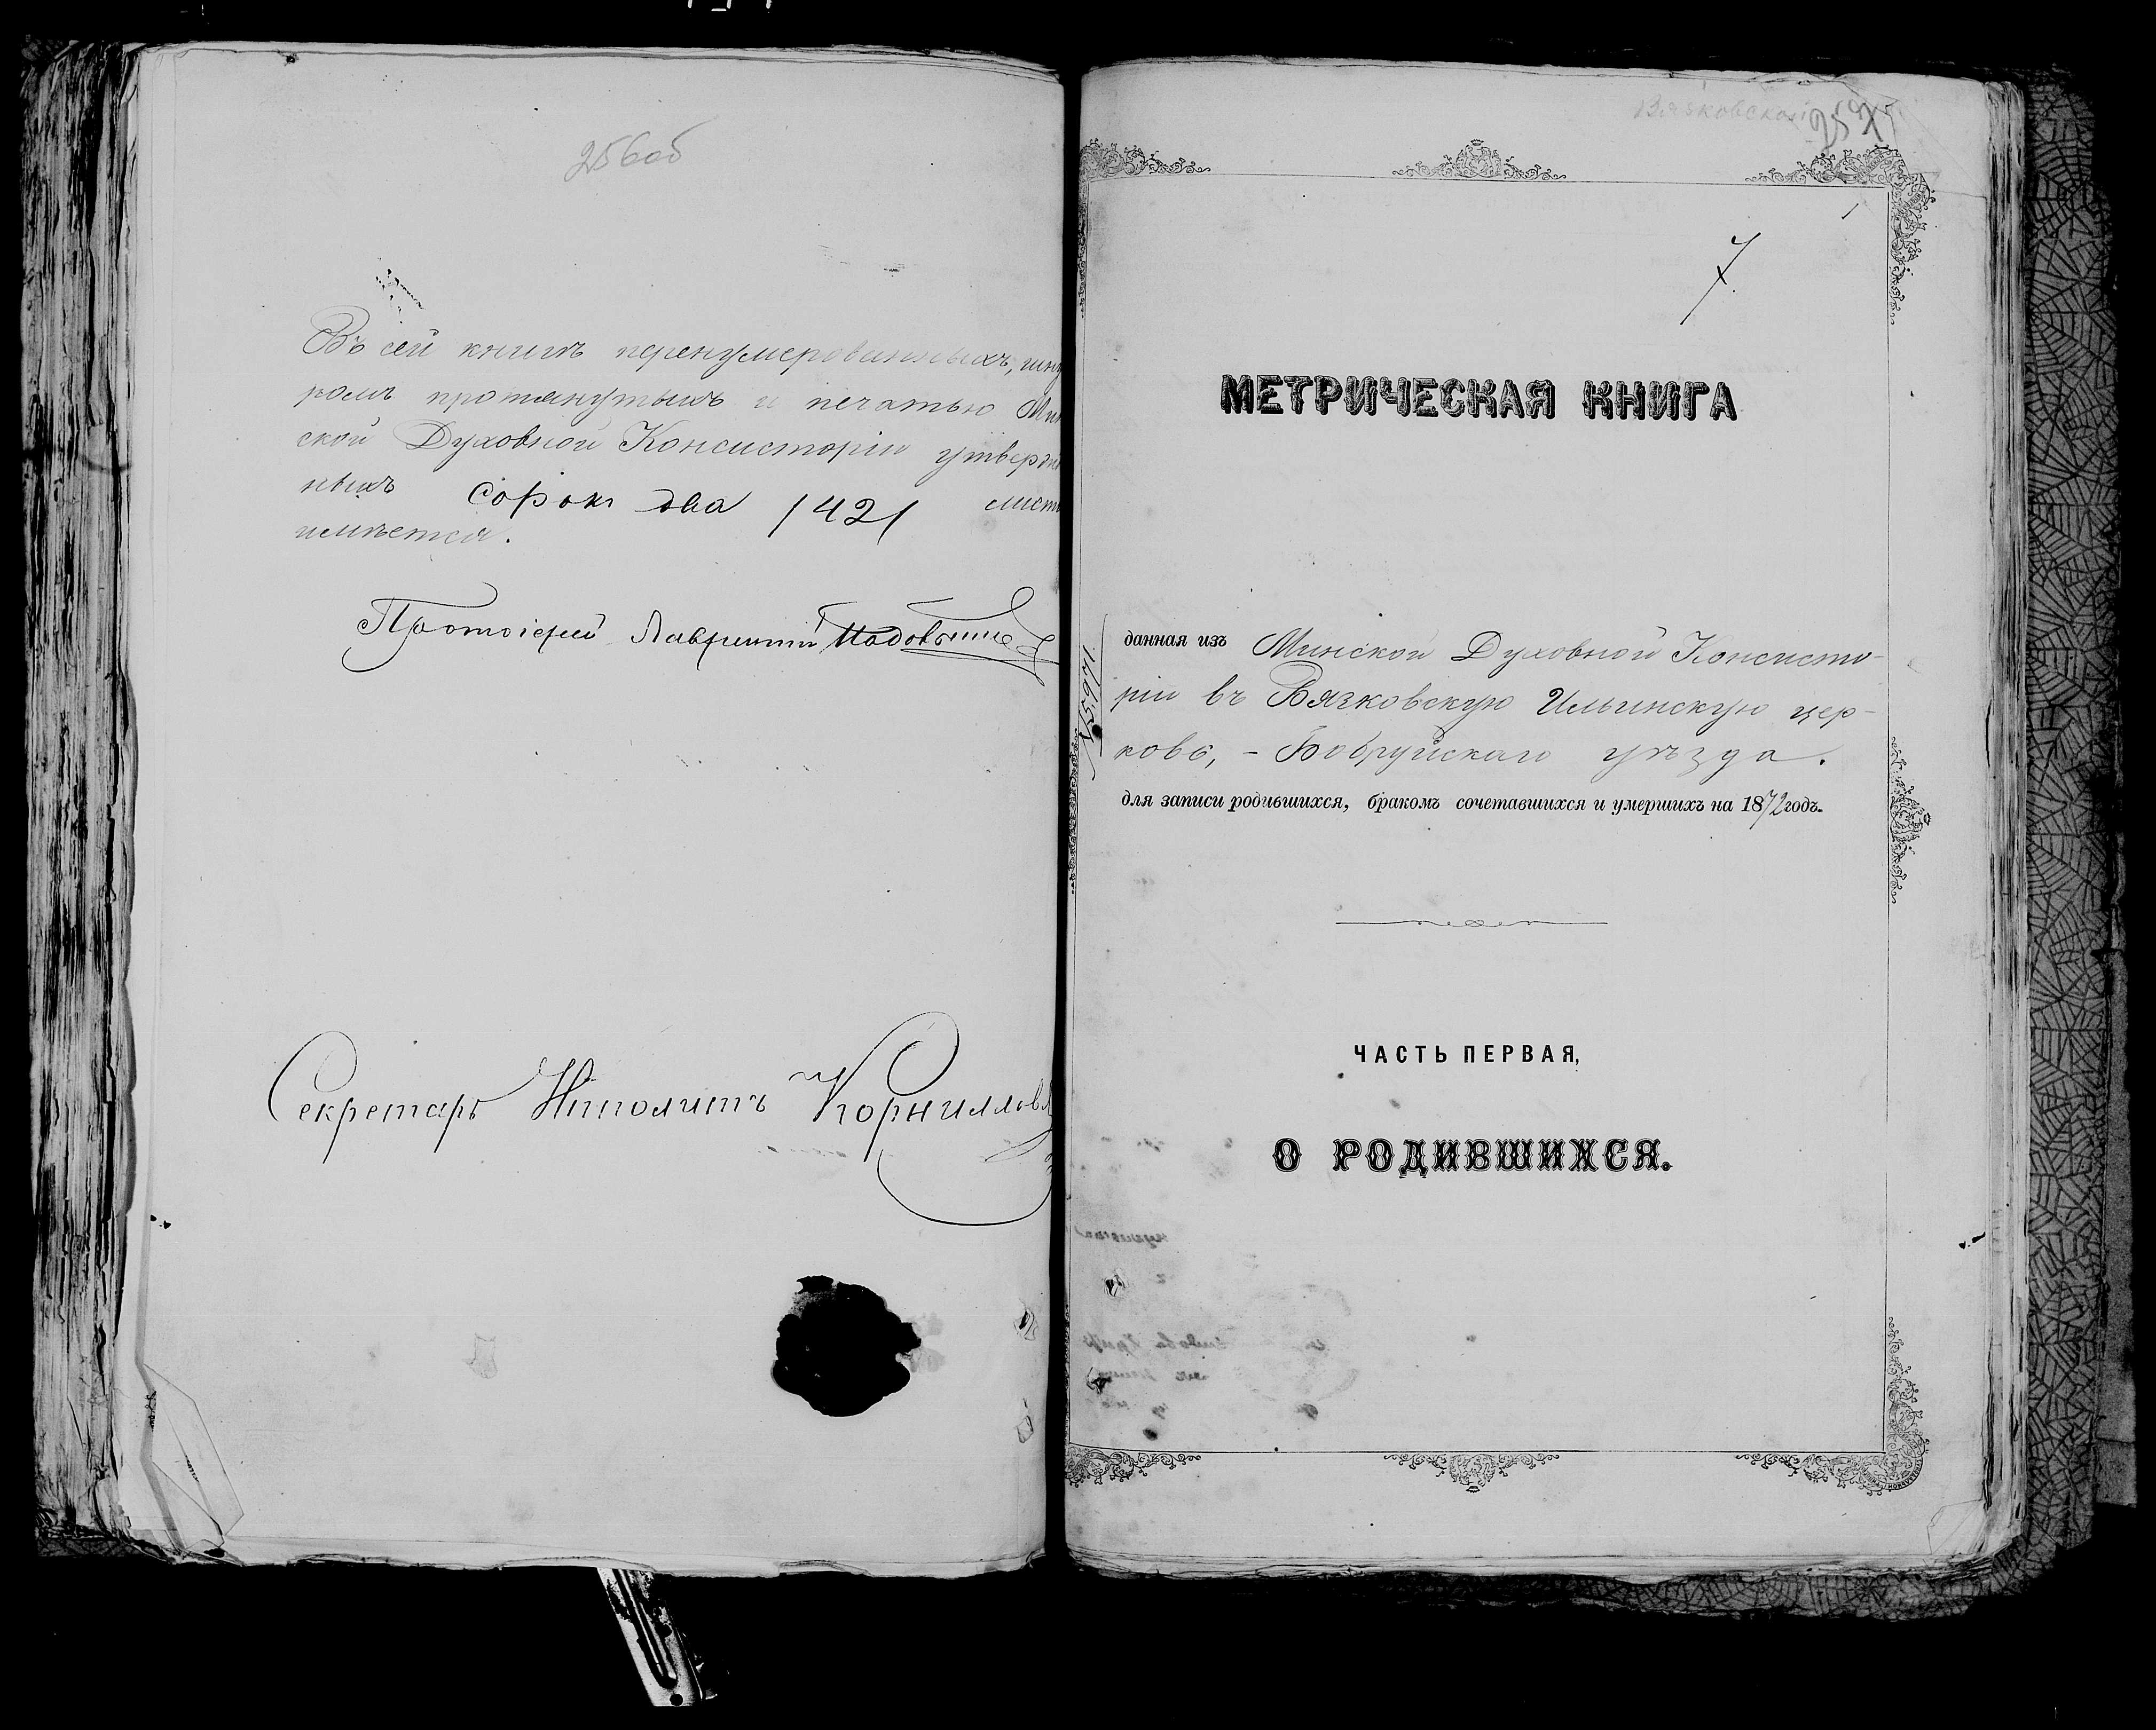 256об
Въ сей книгѣ перенумерованныхъ, шну
ромъ протянутыхъ и печатью Мин
ской Духовной Консисторіи утвержд
ныхъ сорок два /42/ лист
имѣется.
Протоіерей Лаврентій
Секретарь Ипполитъ Корнилов
Вязковской 257
7
МЕТРИЧЕСКАЯ КНИГА
данная изъ Минской Духовной Консисто-
ріи въ Вязковскую Ильинскую цер-
ковь, - Бобруйскаго уѣзда.
для записи родившихся, бракомъ сочетавшихся и умершихъ на 1872 годъ.
ЧАСТЬ ПЕРВАЯ,
О РОДИВШИХСЯ.